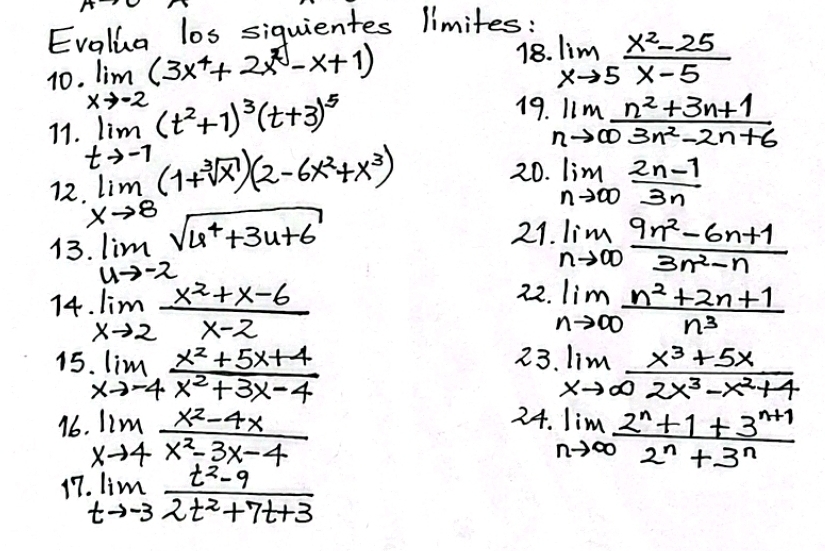 Evalúa los siguientes límites:
10. lim (3x⁴ + 2x² - x + 1)
x→-2
11. lim (t²+1)³(t+3)⁵
t→-1
12. lim (1+∛x)(2-6x²+x³)
x→8
13. lim √u⁴+3u+6
u→-2
14. lim x²+x-6 / x-2
x→2
15. lim x²+5x+4 / x²+3x-4
x→-4
16. lim x²-4x / x²-3x-4
x→4
17. lim t²-9 / 2t²+7t+3
t→-3
18. lim x²-25 / x-5
x→5
19. lim n²+3n+1 / 3n²-2n+6
n→∞
20. lim 2n-1 / 3n
n→∞
21. lim 9n²-6n+1 / 3n²-n
n→∞
22. lim n²+2n+1 / n³
n→∞
23. lim x³+5x / 2x³-x²+4
x→∞
24. lim 2ⁿ+1+3ⁿ⁺¹ / 2ⁿ+3ⁿ
n→∞